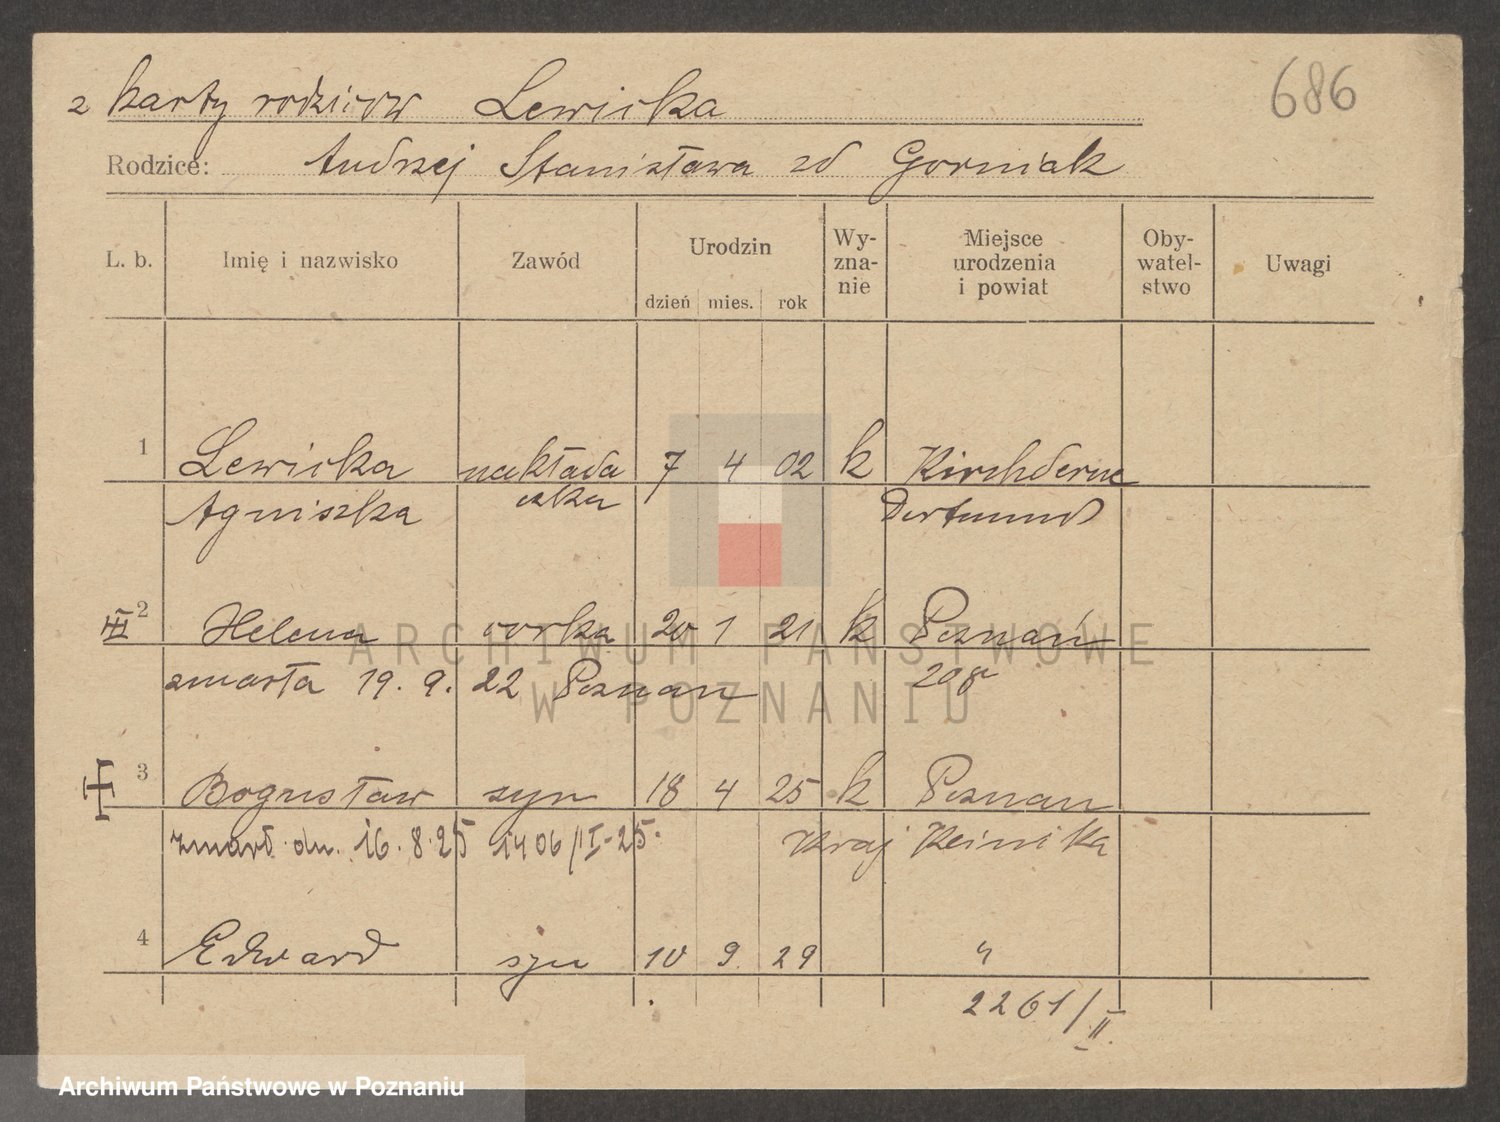 686
z karty rodziców Lewicka
Rodzice: Andrzej Stanisława zd Gorniak
L. b. Imię i nazwisko Zawód Urodzin dzień mies. rok Wy-zna-nie Miejsce urodzenia i powiat Oby-watel-stwo Uwagi
1 Lewicka nakłada 7 4 02 k Kirchderne
Agniszka czka Dortmund
2 Helena corka 20 1 21 k Poznań
zmarła 19. 9. 22 Poznan 208
3 Bogusław syn 18 4 25 k Poznan
zmarł dn. 16. 8. 25 1406/II-25. Kraj
4 Edward syn 10 9. 29 "
2261/II.
ARCHIWUM PAŃSTWOWE
W POZNANIU
Archiwum Państwowe w Poznaniu